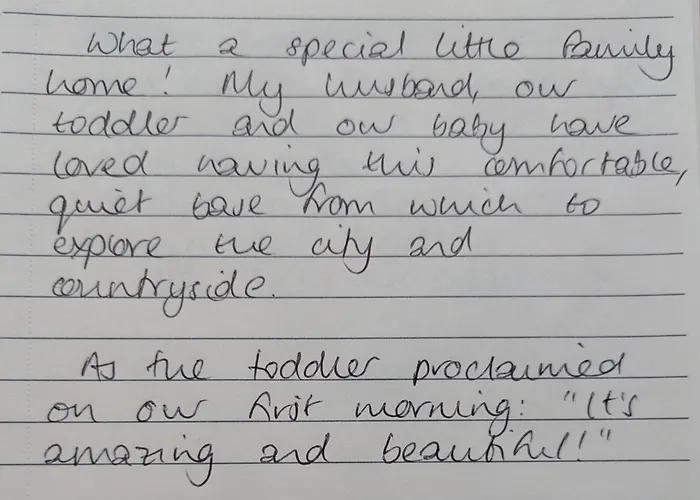 What a special little family
home! My husband, our
toddler and our baby have
loved having this comfortable,
quiet base from which to
explore the city and
countryside.
As the toddler proclaimed
on our first morning: "It's
amazing and beautiful!"